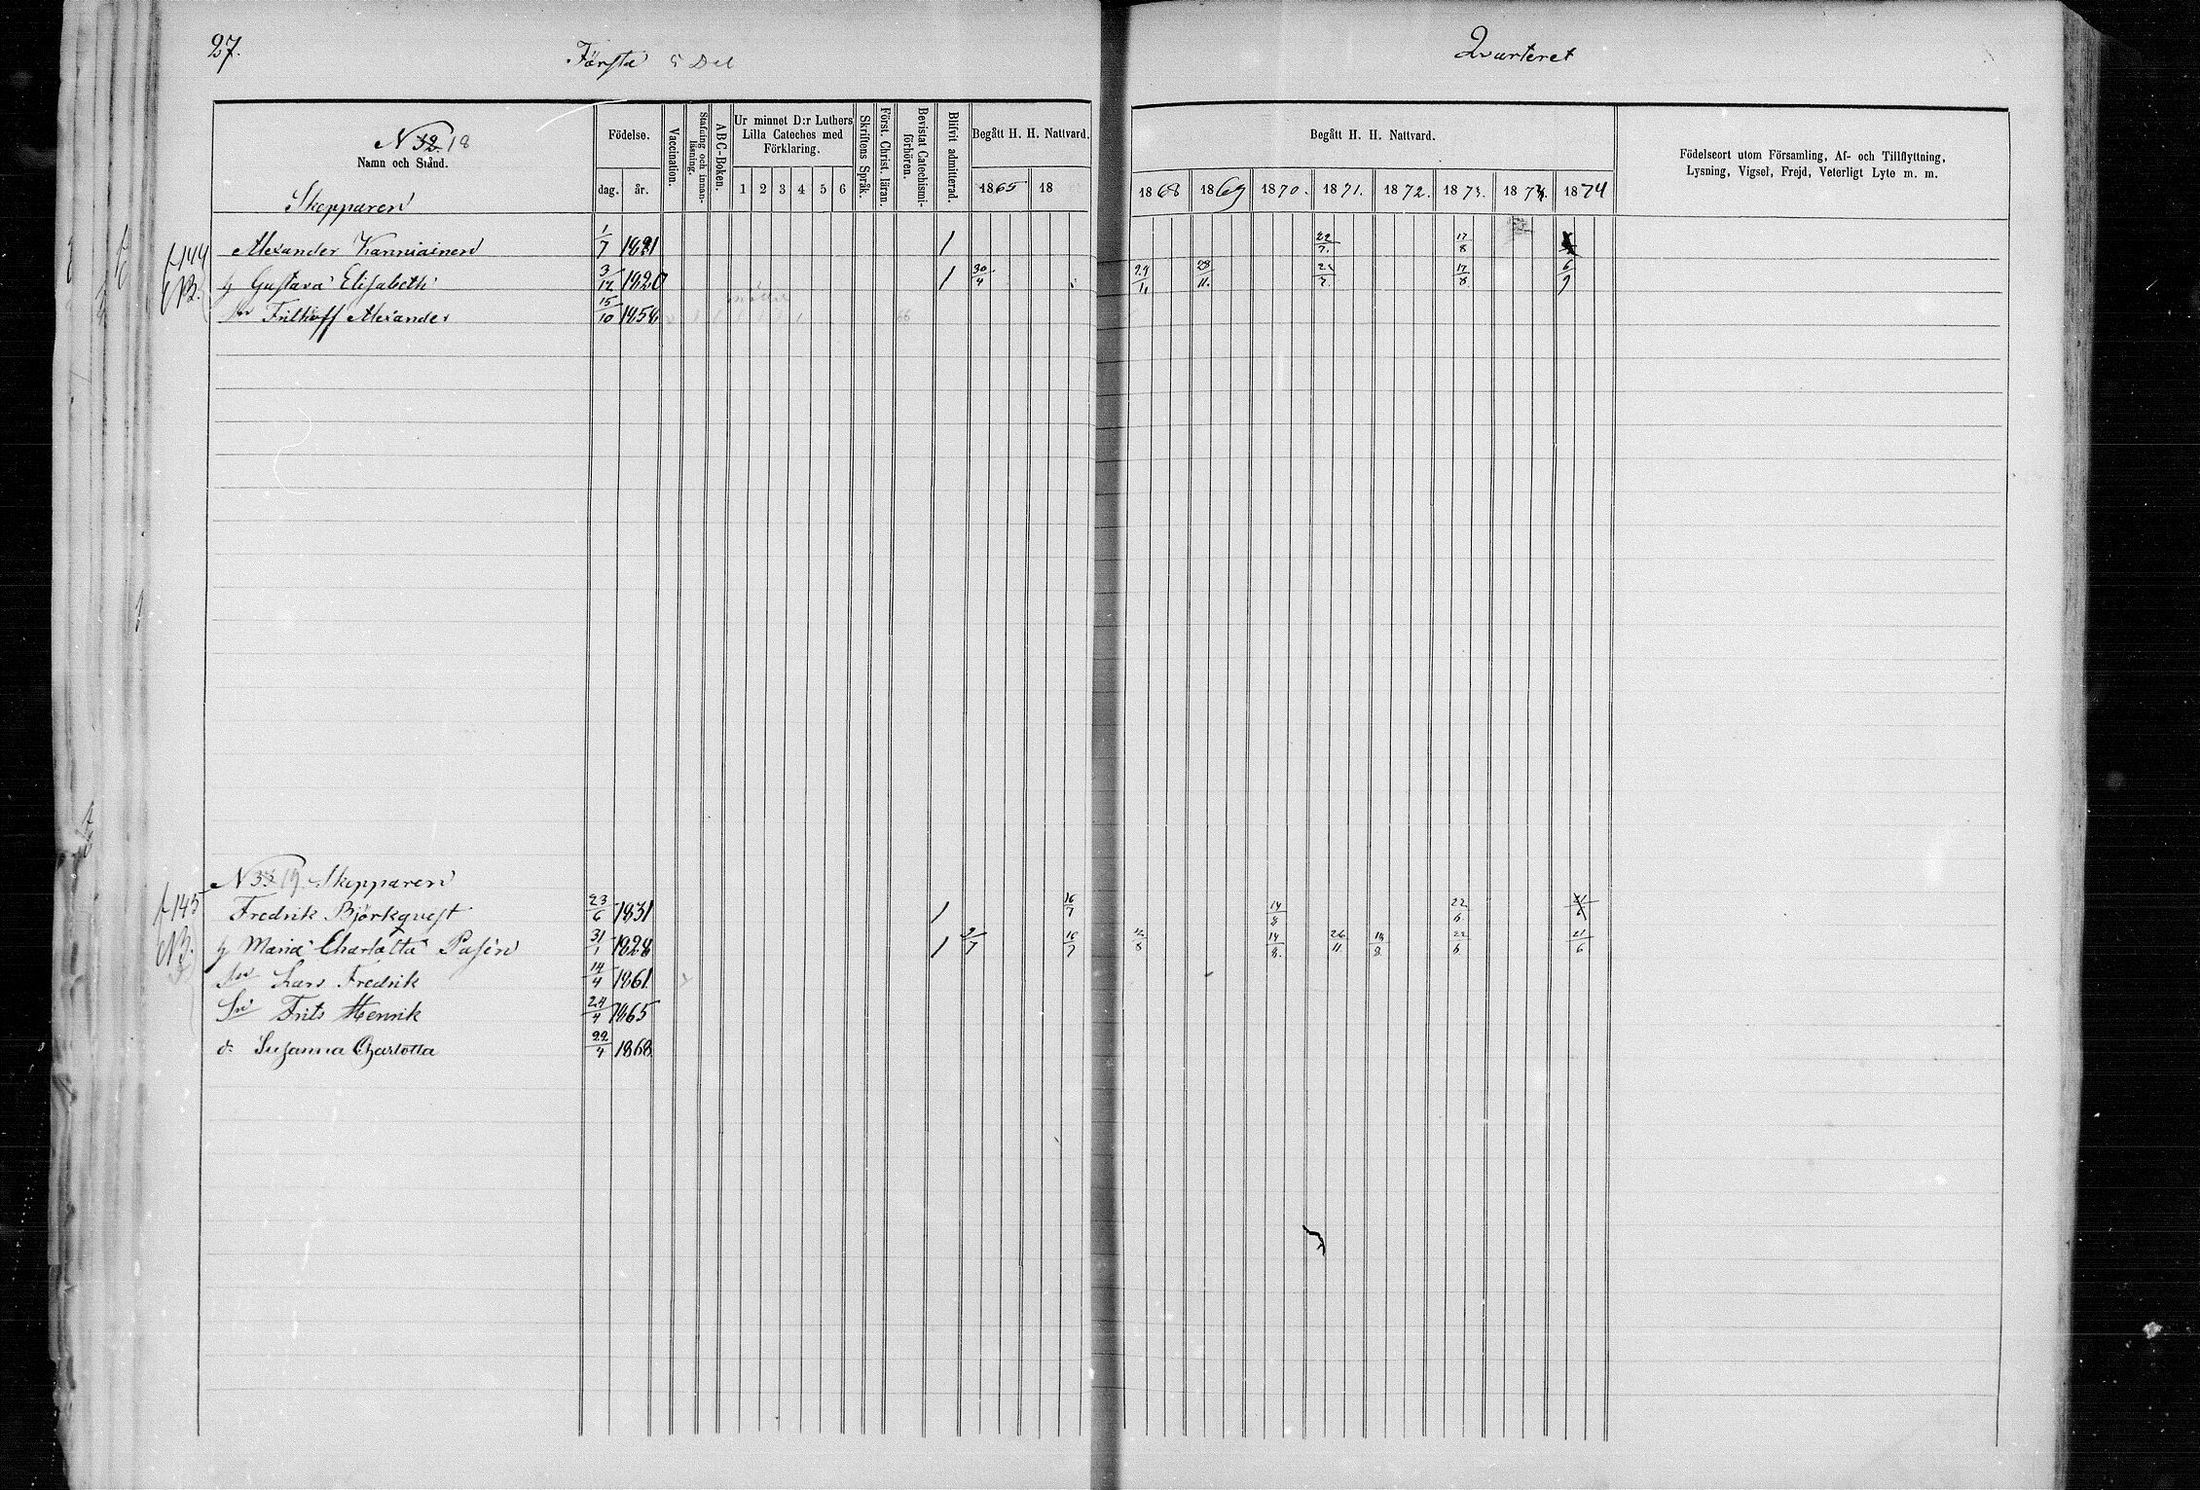 27.
Första 5 Del
Qvarteret
N 32. 18
Namn och Stånd.
Födelse.
dag. år.
Vaccination.
Stafning och innanläsning.
ABC-Boken.
Ur minnet D:r Luthers Lilla Cateches med Förklaring.
1 2 3 4 5 6
Skriftens Språk.
Först. Christ. läran.
Bevistat Catechismiförhören.
Blifvit admitterad.
Begått H. H. Nattvard.
1865 18
Begått H. H. Nattvard.
1868 1869 1870. 1871. 1872. 1873. 1874
Födelseort utom Församling, Af- och Tillflyttning,
Lysning, Vigsel, Frejd, Veterligt Lyte m. m.
Skepparen
f. 144
Alexander Kanniainen 1/7 1821 / 22/7. 17/8
h Gustava Elisabeth 3/12 1820 / 30/4 29/11 28/11. 22/7. 17/8 6/9
Sn Frithioff Alexander 15/10 1858
N 33 19. Skepparen
f. 145
Fredrik Björkqvist 23/6 1831 / 16/7 14/8 22/6
NB.
h Maria Charlotta Pasén 31/1 1828 / 9/7 16/7 12/8 14/8. 26/11 18/8 22/6 21/6
Sn Lars Fredrik 14/4 1861
Sn Frits Henrik 24/4 1865
d: Susanna Charlotta 22/4 1868